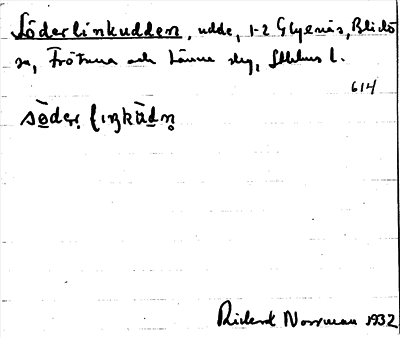 Söderlinkudden, udde, 1-2 Glyxnäs, Blidö
sn, Frötuna och Länna slg, Sthlms l.
614
Richard Norrman 1932